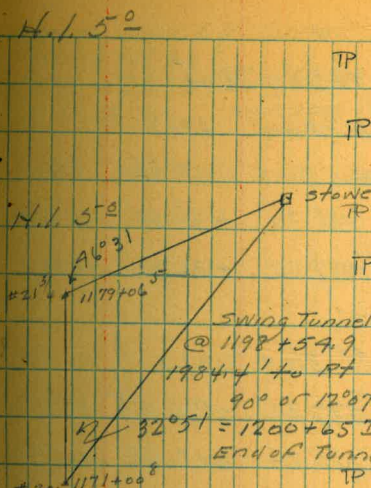 H.I. 5º
TP
TP
Stowe
TP
H.I. 5º
46°31
TP
#21
1179+06
Swing Tunnel
@ 1198+54.9
1984.4' to Pt
90° or 12°07
32°51 = 1200+65
End of Tunn
1171+00⁸
TP